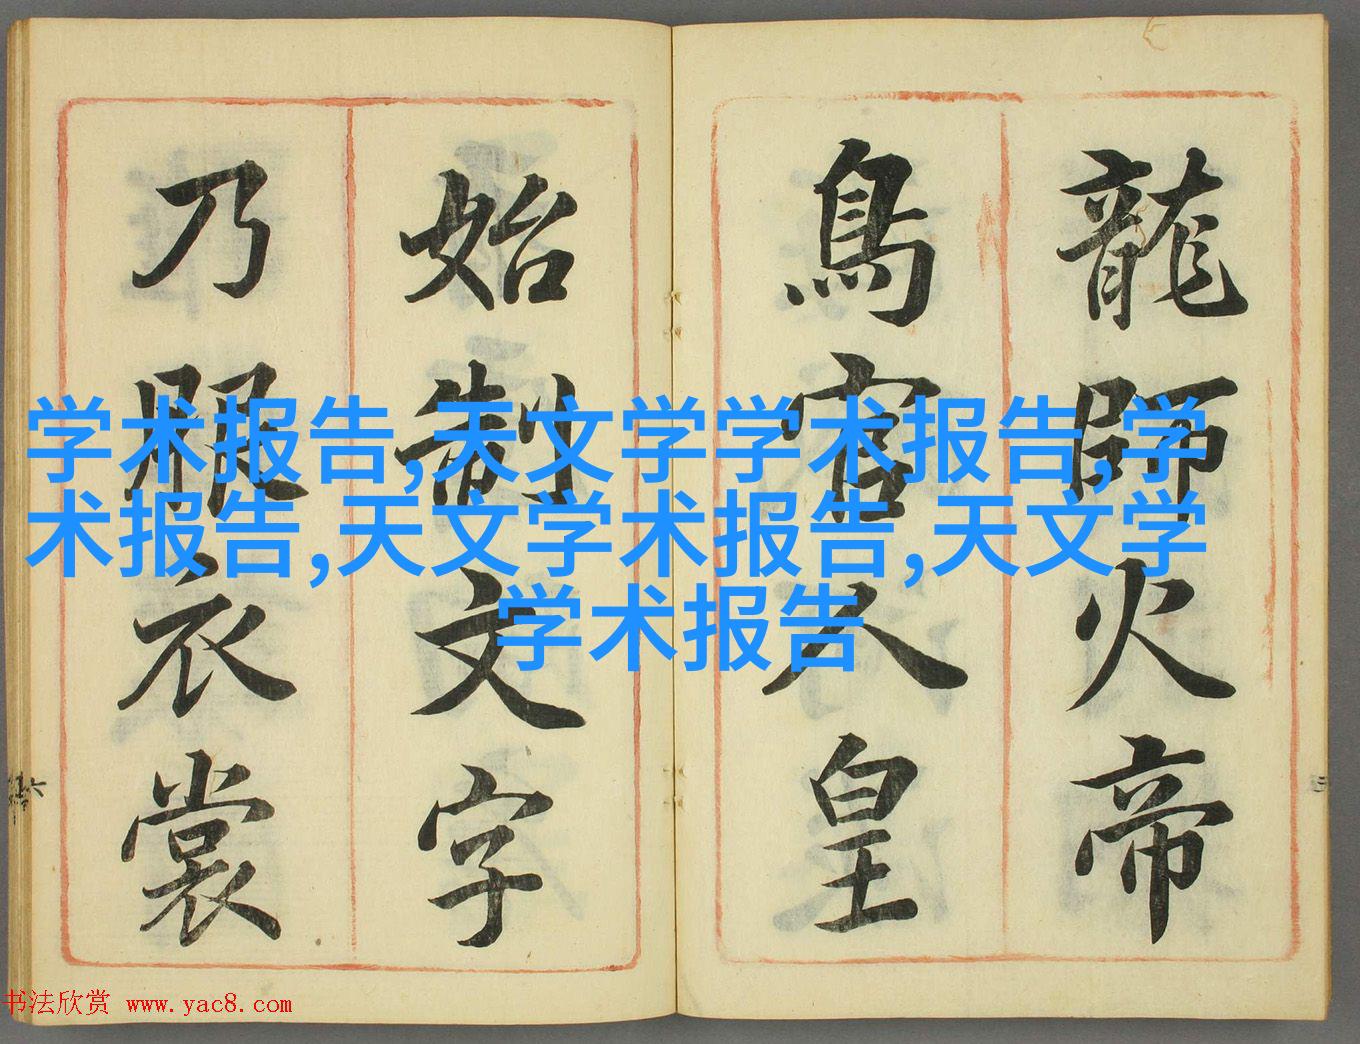 龍師火帝
鳥官人皇
始制文字
乃服衣裳
学术报告,天文学学术报告,学
术报告,天文学术报告,天文学
学术报告
书法欣赏 www.yac8.com